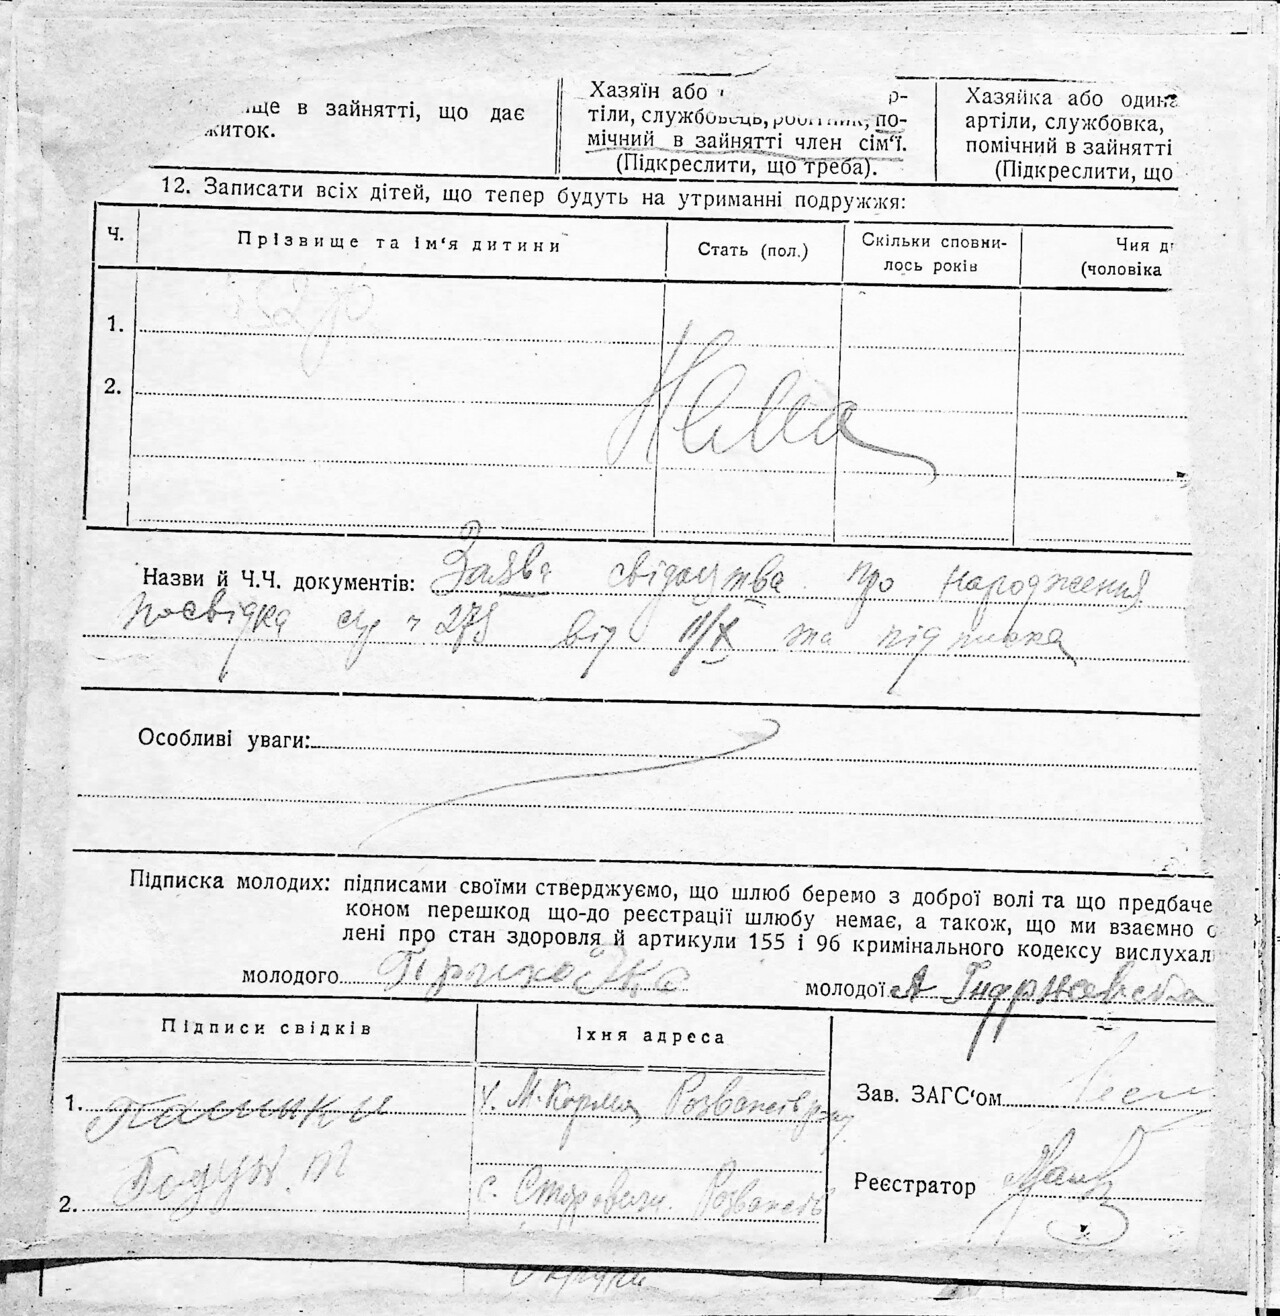 ще в зайнятті, що дає
житок.
Хазяїн або р-
тіли, службовець, робітник, по-
мічний в зайнятті член сім'ї.
(Підкреслити, що треба).
Хазяйка або один
артіли, службовка,
помічний в зайнятті
(Підкреслити, що
12. Записати всіх дітей, що тепер будуть на утриманні подружжя:
Ч.
Прізвище та ім'я дитини
Стать (пол.)
Скільки сповни-
лось років
Чия д
(чоловіка
1.
2.
Нема
Назви й Ч.Ч. документів: Заява свідоцтва про народження
посвідка 279 від 11/X та підписка
Особливі уваги:
Підписка молодих: підписами своїми стверджуємо, що шлюб беремо з доброї волі та що предбаче
коном перешкод що-до реєстрації шлюбу немає, а також, що ми взаємно с
лені про стан здоровля й артикули 155 і 96 кримінального кодексу вислухал
молодого
молодої А
Підписи свідків
Їхня адреса
1.
х. М. Корма Розважів
Зав. ЗАГС'ом
2.
с. Розважів
Реєстратор
Округи